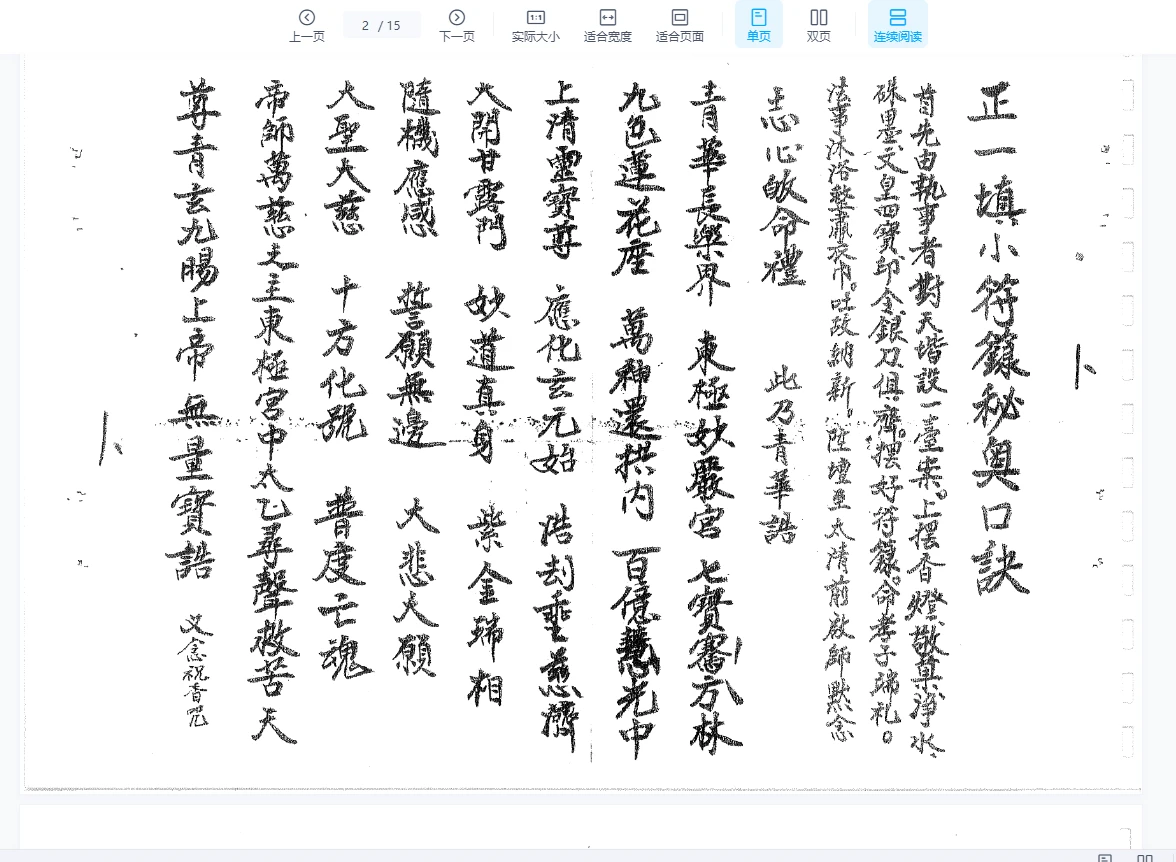 上一页
2 / 15
下一页
1:1
实际大小
适合宽度
适合页面
单页
双页
连续阅读
正一填小符籙秘奥口訣
首先由執事者對天堦設一臺案。上擺香燈、敬菓、淨水、
硃墨、文皇四寶、印、金銀刀俱齊。摆好符籙。命孝子端礼。
法事沐浴整肅衣巾。吐故納新。陞壇至太清前啟師默念
志心皈命禮 此乃青華誥
青華長樂界 東極妙嚴宮 七寶騫方林
九色蓮花座 萬神還拱内 百億慧光中
上清靈寶尊 應化玄元始 浩劫垂慈濟
大開甘露門 妙道真身 紫金瑞相
隨機應感 誓願無邊 大悲大願
大聖大慈 十方化號 普度亡魂
帝師萬慈 主東極宮中太乙尋聲救苦天
尊青玄九陽上帝 無量寶誥 又念祝香咒